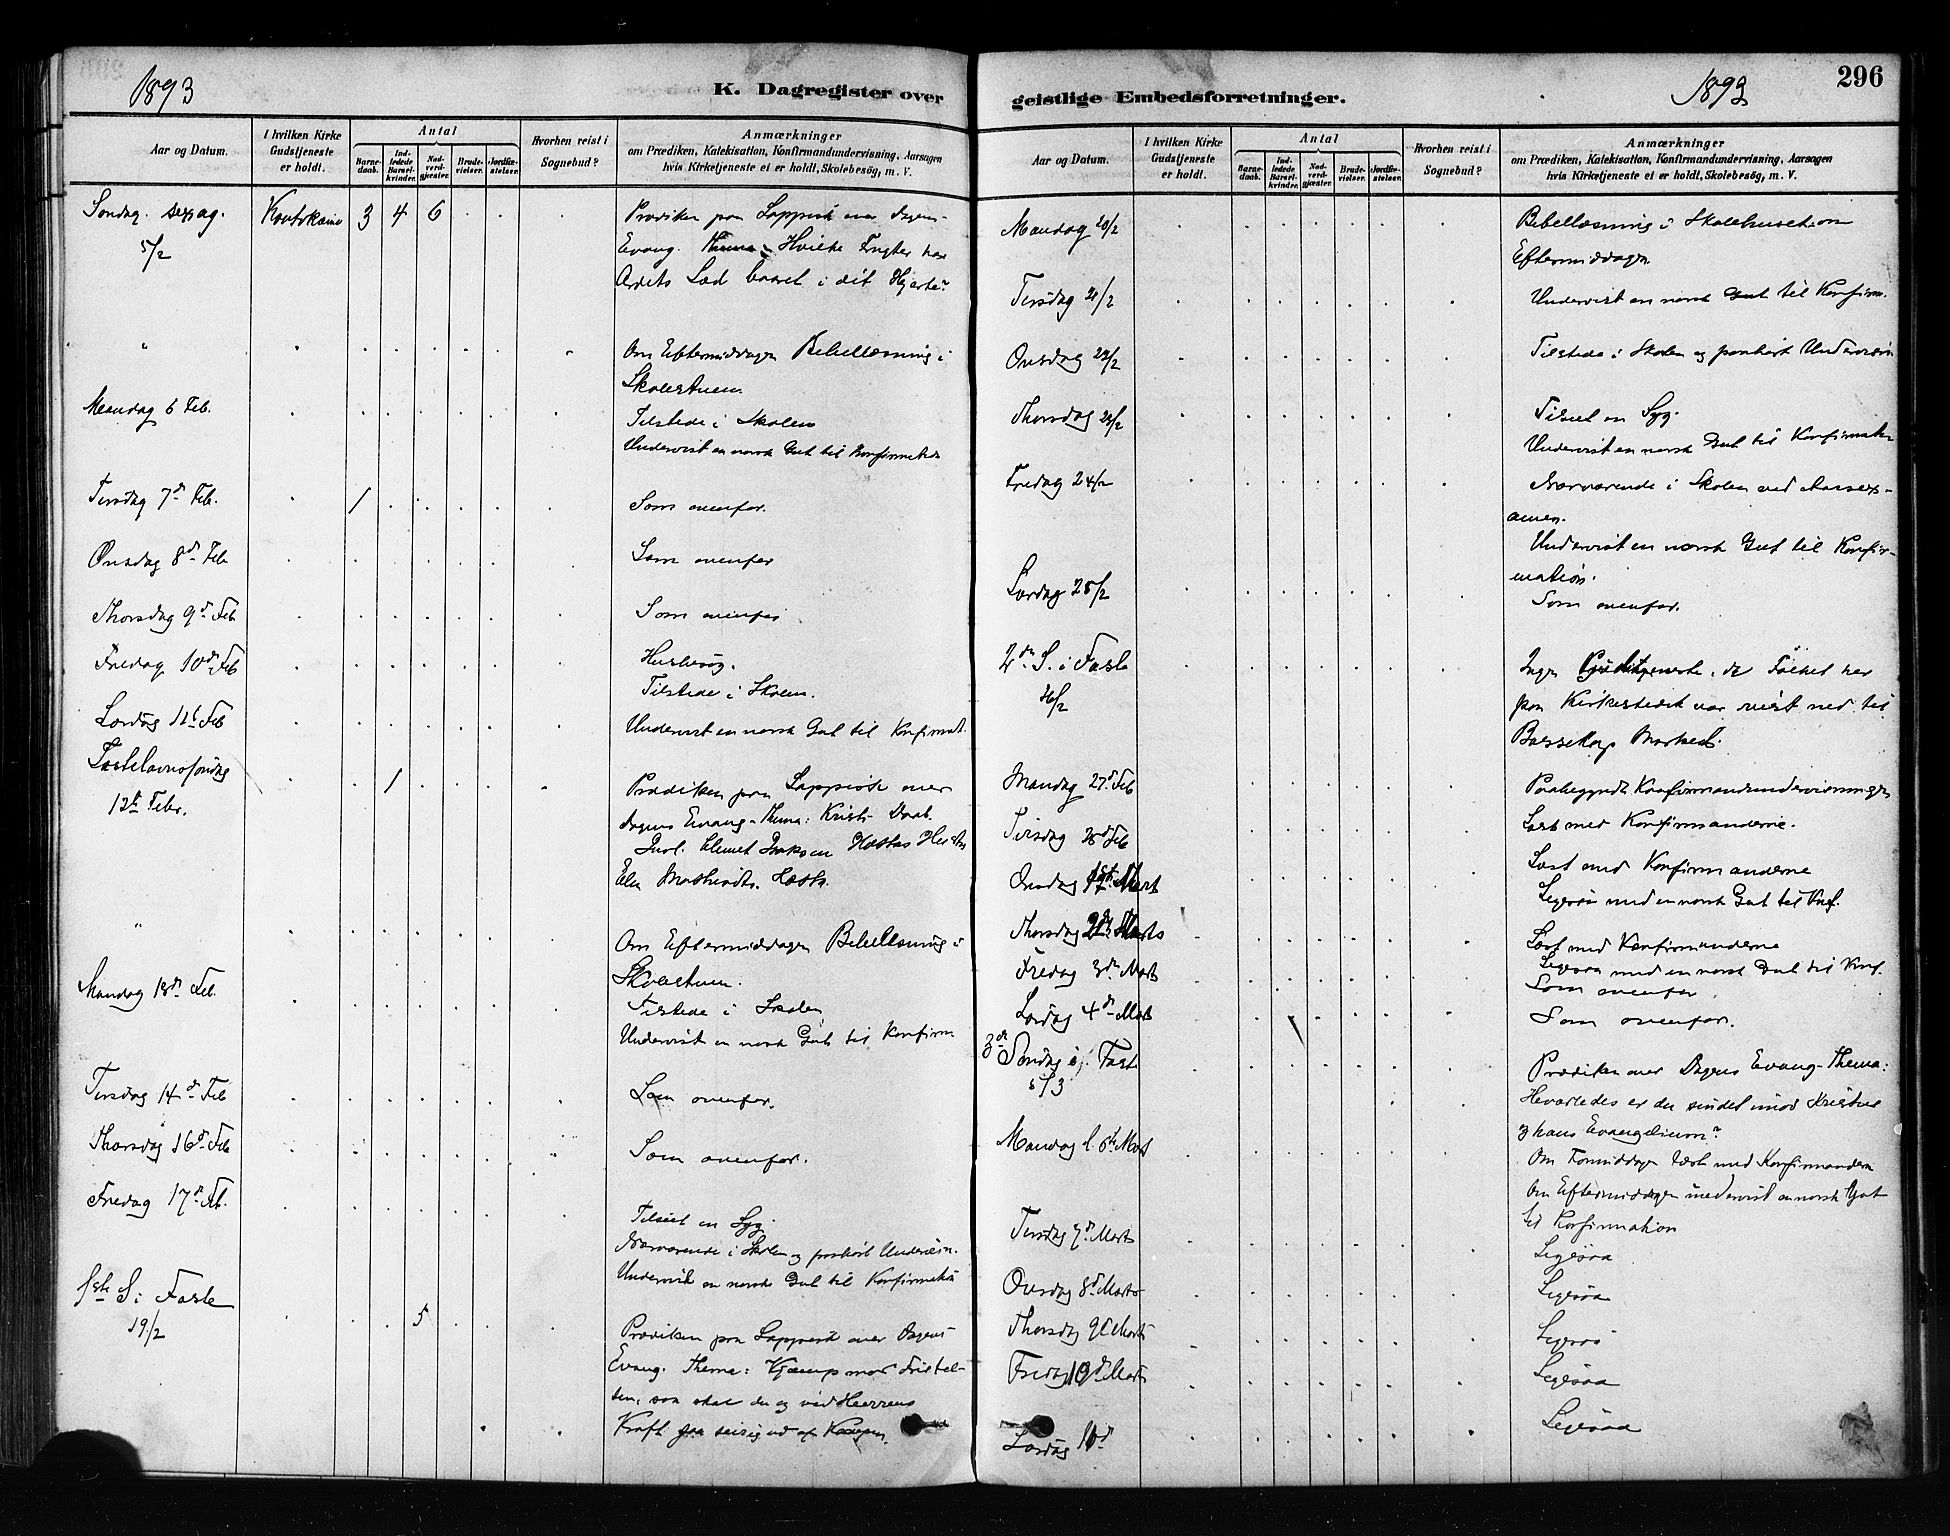 1893
K. Dagregister over
Aar og Datum.
I hvilken Kirke Gudstjeneste er holdt.
Antal
Barnedaab.
Indledede Barselkvinder.
Nadverdgjester.
Brudevielser.
Jordfæstelser.
Hvorhen reist i Sognebud?
Anmærkninger
om Prædiken, Katekisation, Konfirmandundervisning, Aarsagen
hvis Kirketjeneste ei er holdt, Skolebesøg, m. V.
Søndag. sexag. Kautokeino 3 4 6 Prædiken paa Lappisk over Dagens
5/2 Evang. Thema: Hvilke Frugter har
Ordets Sæd baaret i dit Hjerte?
" Om Eftermiddagen Bibellæsning i
Skolestuen.
Mandag 6 Feb. Tilstede i Skolen
Undervist en norsk Gut til Konfirmation
Tirsdag 7d Feb. 1 Som ovenfor.
Onsdag 8d Feb Som ovenfor
Thorsdag 9d Feb Som ovenfor
Fredag 10d Feb Husbesøg.
Tilstede i Skolen.
Lørdag 11t Feb Undervist en norsk Gut til Konfirmat.
Fastelavnssøndag 1 Prædiken paa Lappisk over
12te Febr. dagens Evang. Thema: Kristi Daab.
Introl. Clemet Isaksen Hætta
Elen Hætta.
" Om Eftermiddagen Bibellæsning i
Skolestuen.
Mandag 13de Feb. Tilstede i Skolen
Undervist en norsk Gut til Konfirm
Tirsdag 14d Feb Som ovenfor.
Thorsdag 16d Feb Som ovenfor.
Fredag 17d Feb. Tilseet en Syg.
Nærværende i Skolen og paahørt Undervisn.
Undervist en norsk Gut til Konfirmation
1ste S. i Faste 5
19/2 Prædiken paa Lappisk over Dagens
Evang. Thema: Kjæmp mod Fristel-
sen, saa skal du og ved Herrens
Kraft gaa seirig ud af Kampen.
geistlige Embedsforretninger.
1893
296
Aar og Datum.
I hvilken Kirke Gudstjeneste er holdt.
Antal
Barnedaab.
Indledede Barselkvinder.
Nadverdgjester.
Brudevielser.
Jordfæstelser.
Hvorhen reist i Sognebud?
Anmærkninger
om Prædiken, Katekisation, Konfirmandundervisning, Aarsagen
hvis Kirketjeneste ei er holdt, Skolebesøg, m. V.
Mandag 20/2 Bibellæsning i Skolehuset om
Eftermiddagen
Tirsdag 21/2 Undervist en norsk Gut til Konfirm.
Onsdag 22/2 Tilstede i Skolen og paahørt Undervisn
Thorsdag 23/2 Tilseet en Syg.
Undervist en norsk Gut til Konfirmation
Fredag 24/2 Nærværende i Skolen ved Aarsex-
amen.
Undervist en norsk Gut til Konfir-
mation.
Lørdag 25/2 Som ovenfor.
2den S. i Faste Ingen Gudstjeneste, da Folket her
26/2 paa Kirkestedet var reist ned til
Bossekop Marked.
Mandag 27d Feb Paabegyndt Konfirmandundervisningen
Tirsdag 28d Feb Læst med Konfirmanderne.
Onsdag 1st Marts Læst med Konfirmanderne
Ligesaa med en norsk Gut til Konf.
Thorsdag 2den Marts Læst med Konfirmanderne
Ligesaa med en norsk Gut til Konf.
Fredag 3de Marts Som ovenfor.
Lørdag 4de Marts Som ovenfor.
3de Søndag i Fast
5/3 Prædiken over Dagens Evang. Thema:
Hvorledes er du sindet imod Kristus
og hans Evangelium?
Mandag d. 6te Marts Om Formiddagen læst med Konfirmanderne
Om Eftermiddagen undervist en norsk Gut
til Konfirmation
Tirsdag 7d Marts Ligesaa
Onsdag 8d Marts Ligesaa
Thorsdag 9d Marts Ligesaa
Fredag 10d Marts Ligesaa
Lørdag 11d Ligesaa